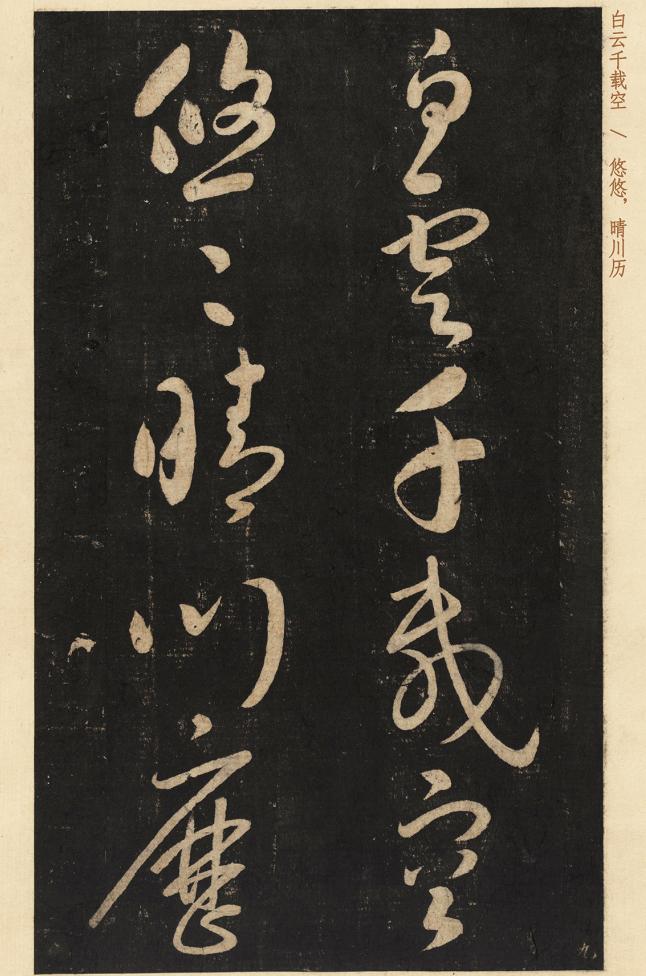 白云千载空 \ 悠悠，晴川历
白雲千載空
悠〻晴川歷
九